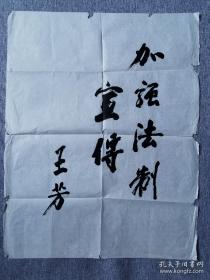 加强法制
宣传
王芳
孔夫子旧书网